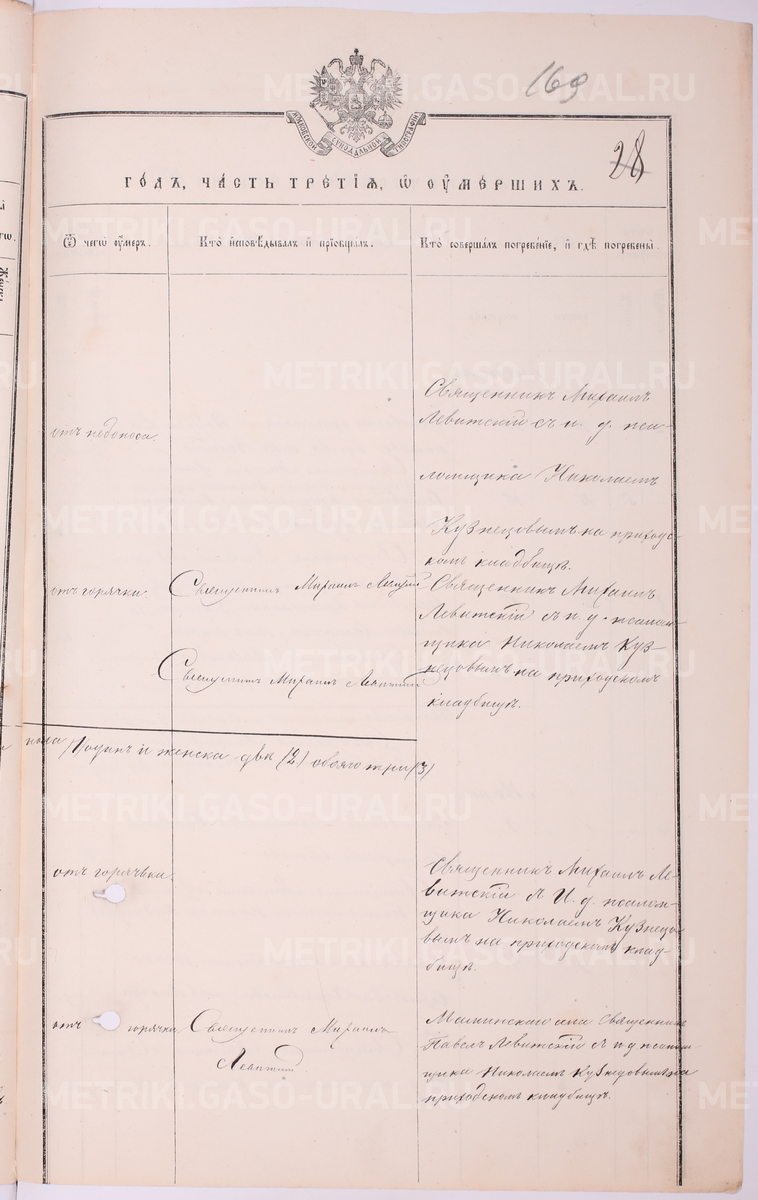 169
28
МОСКОВСКОЙ СѴНОДАЛЬНОЙ ТИПОГРАФІИ
ГОДЪ, ЧАСТЬ ТРЕТІЯ, Ѡ ОУМЕРШИХЪ.
Ѿ чегѡ оумеръ.
Кто исповѣдывалъ и пріобщалъ.
Кто совершалъ погребеніе, и гдѣ погребены.
отъ недоноса.
Священникъ Михаилъ
Левитскій съ и. д. пса-
ломщика Николаемъ
Кузнецовымъ на приход-
комъ кладбищѣ.
отъ горячки.
Священникъ Михаилъ
Священникъ Михаилъ
Левитскій съ и. д. псалом-
щика Николаемъ Куз-
нецовымъ на приходскомъ
кладбищѣ.
Священникъ Михаилъ Левитскій
одинъ и женска двѣ (2) обоего три (3)
отъ горячки.
Священникъ Михаилъ Ле-
витскій съ И. д. псалом-
щика Николаемъ Кузнецо-
вымъ на приходскомъ клад-
бищѣ.
отъ горячки
Священникъ Михаилъ
Левитскій
Маминскаго села Священникъ
Павелъ Левитскій съ и д псалом-
щика Николаемъ Кузнецовымъ на
приходскомъ кладбищѣ.
METRIKI.GASO-URAL.RU